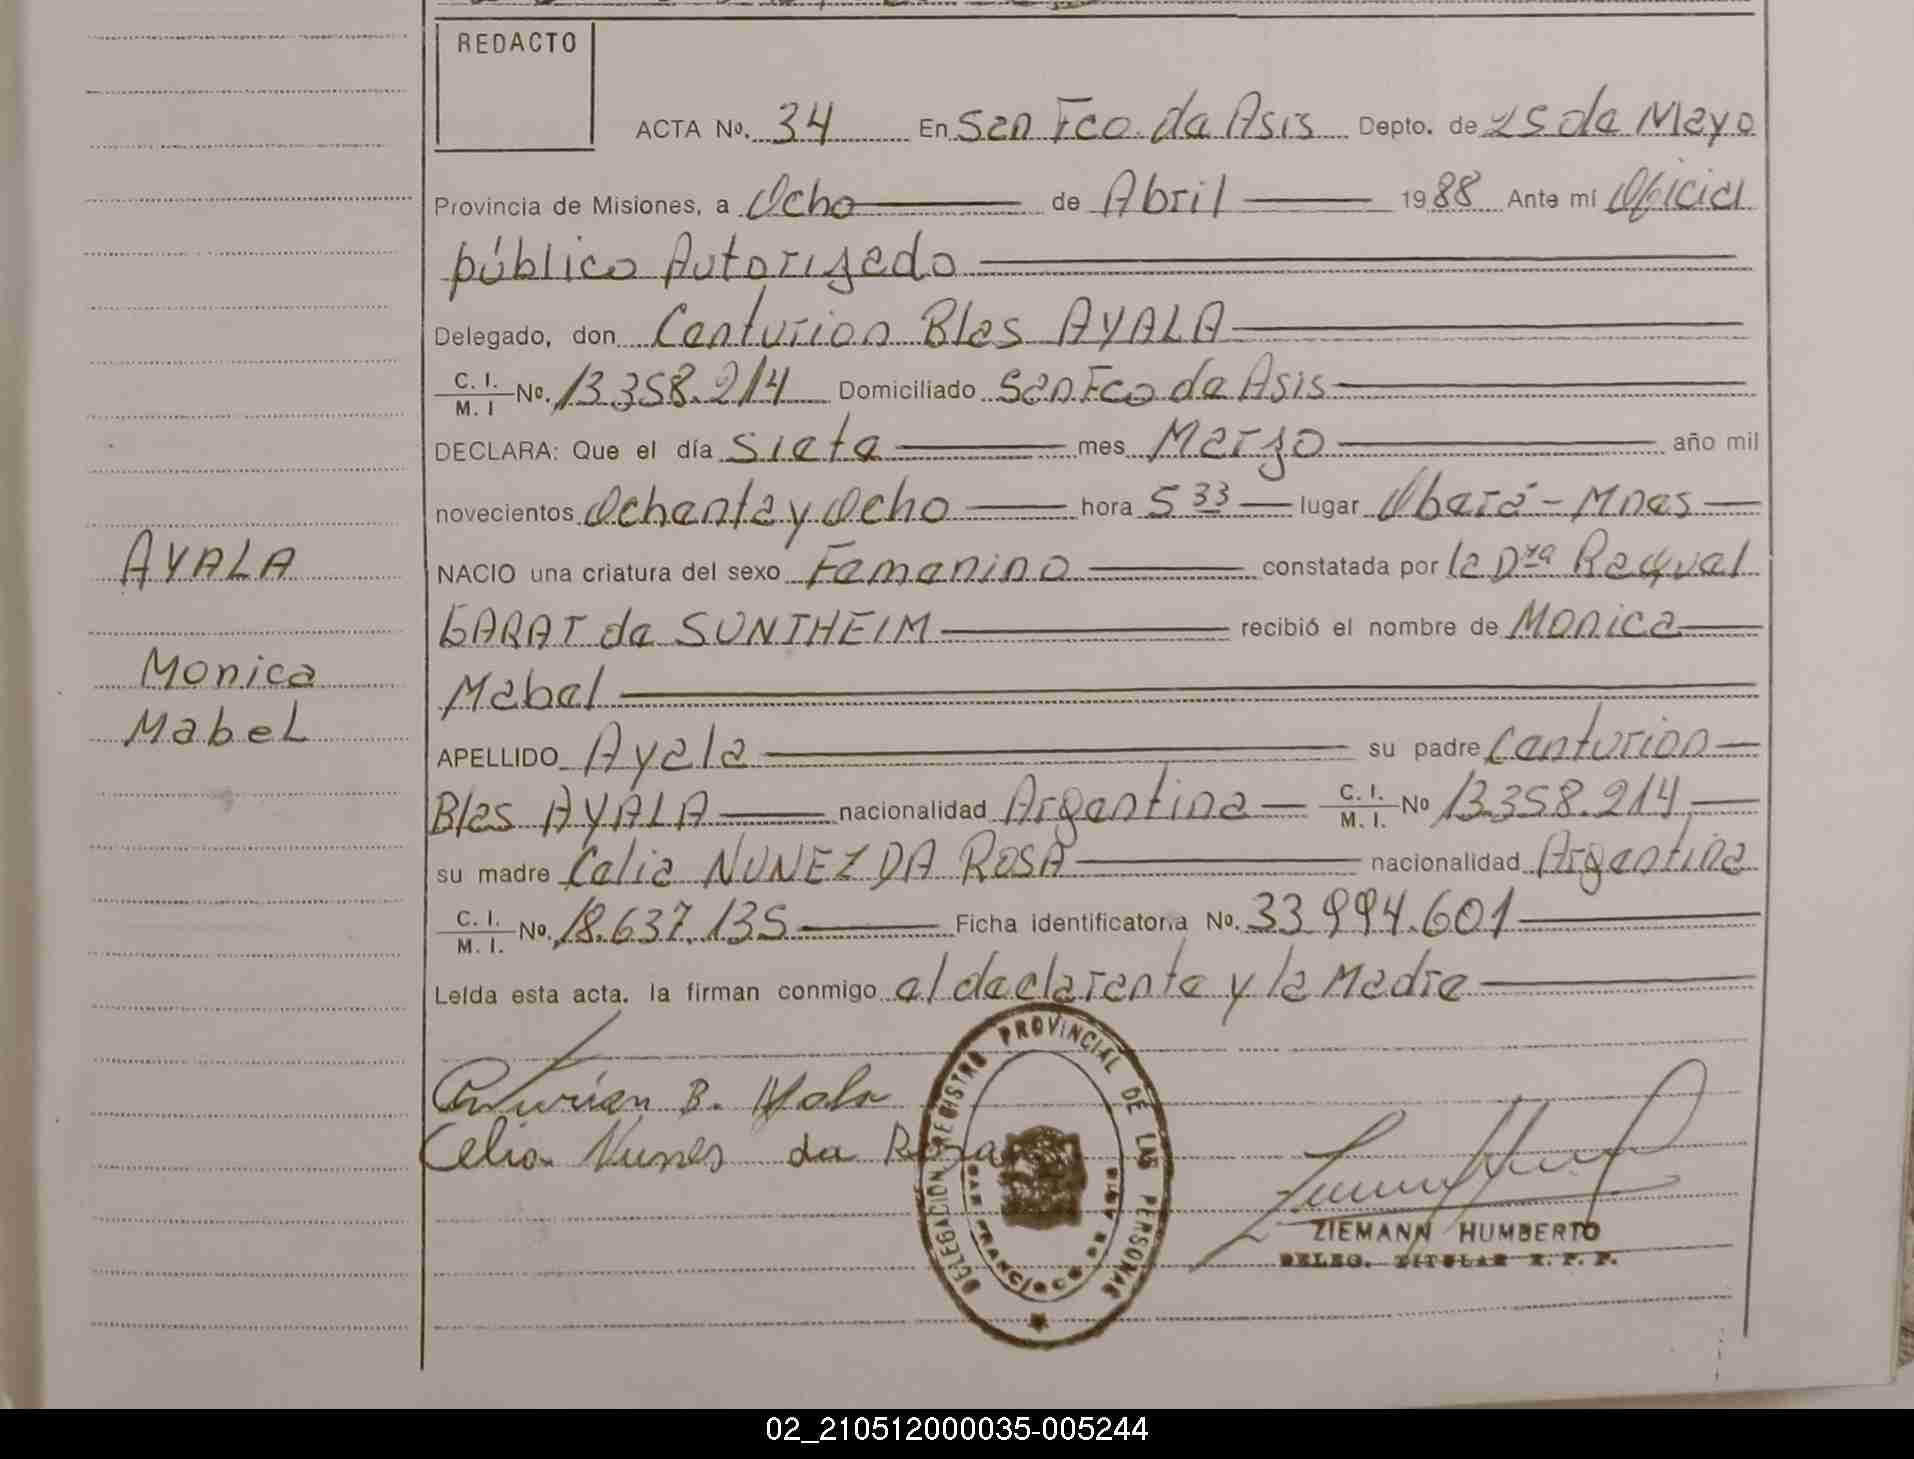 REDACTO
ACTA No. 34 En San Fco. de Asis Depto. de 25 de Mayo
Provincia de Misiones, a Ocho de Abril 1988 Ante mí Oficial
público Autorizado
Delegado, don Centurion Blas AYALA
C. I. M. I No. 13.358.214 Domiciliado San Fco de Asis
DECLARA: Que el día siete mes Marzo año mil
novecientos Ochenta y Ocho hora 5 33 lugar Oberá - Mnes
NACIO una criatura del sexo Femenino constatada por la Dra Raquel
GARAT de SUNTHEIM recibió el nombre de Monica
Mabel
APELLIDO Ayala su padre Centurion
Blas AYALA nacionalidad Argentina C. I. M. I. No 13.358.214
su madre Celia NUNEZ DA ROSA nacionalidad Argentina
C. I. M. I. No. 18.637.135 Ficha identificatoria No. 33.994.601
Leída esta acta. la firman conmigo el declarante y la Madre
AYALA
Monica
Mabel
Centurión B. Ayala
Celia Nunes da Rosa
DELEGACION REGISTRO PROVINCIAL DE LAS PERSONAS
SAN FRANCISCO DE ASIS
ZIEMANN HUMBERTO
DELEG. TITULAR R. P. P.
02_210512000035-005244